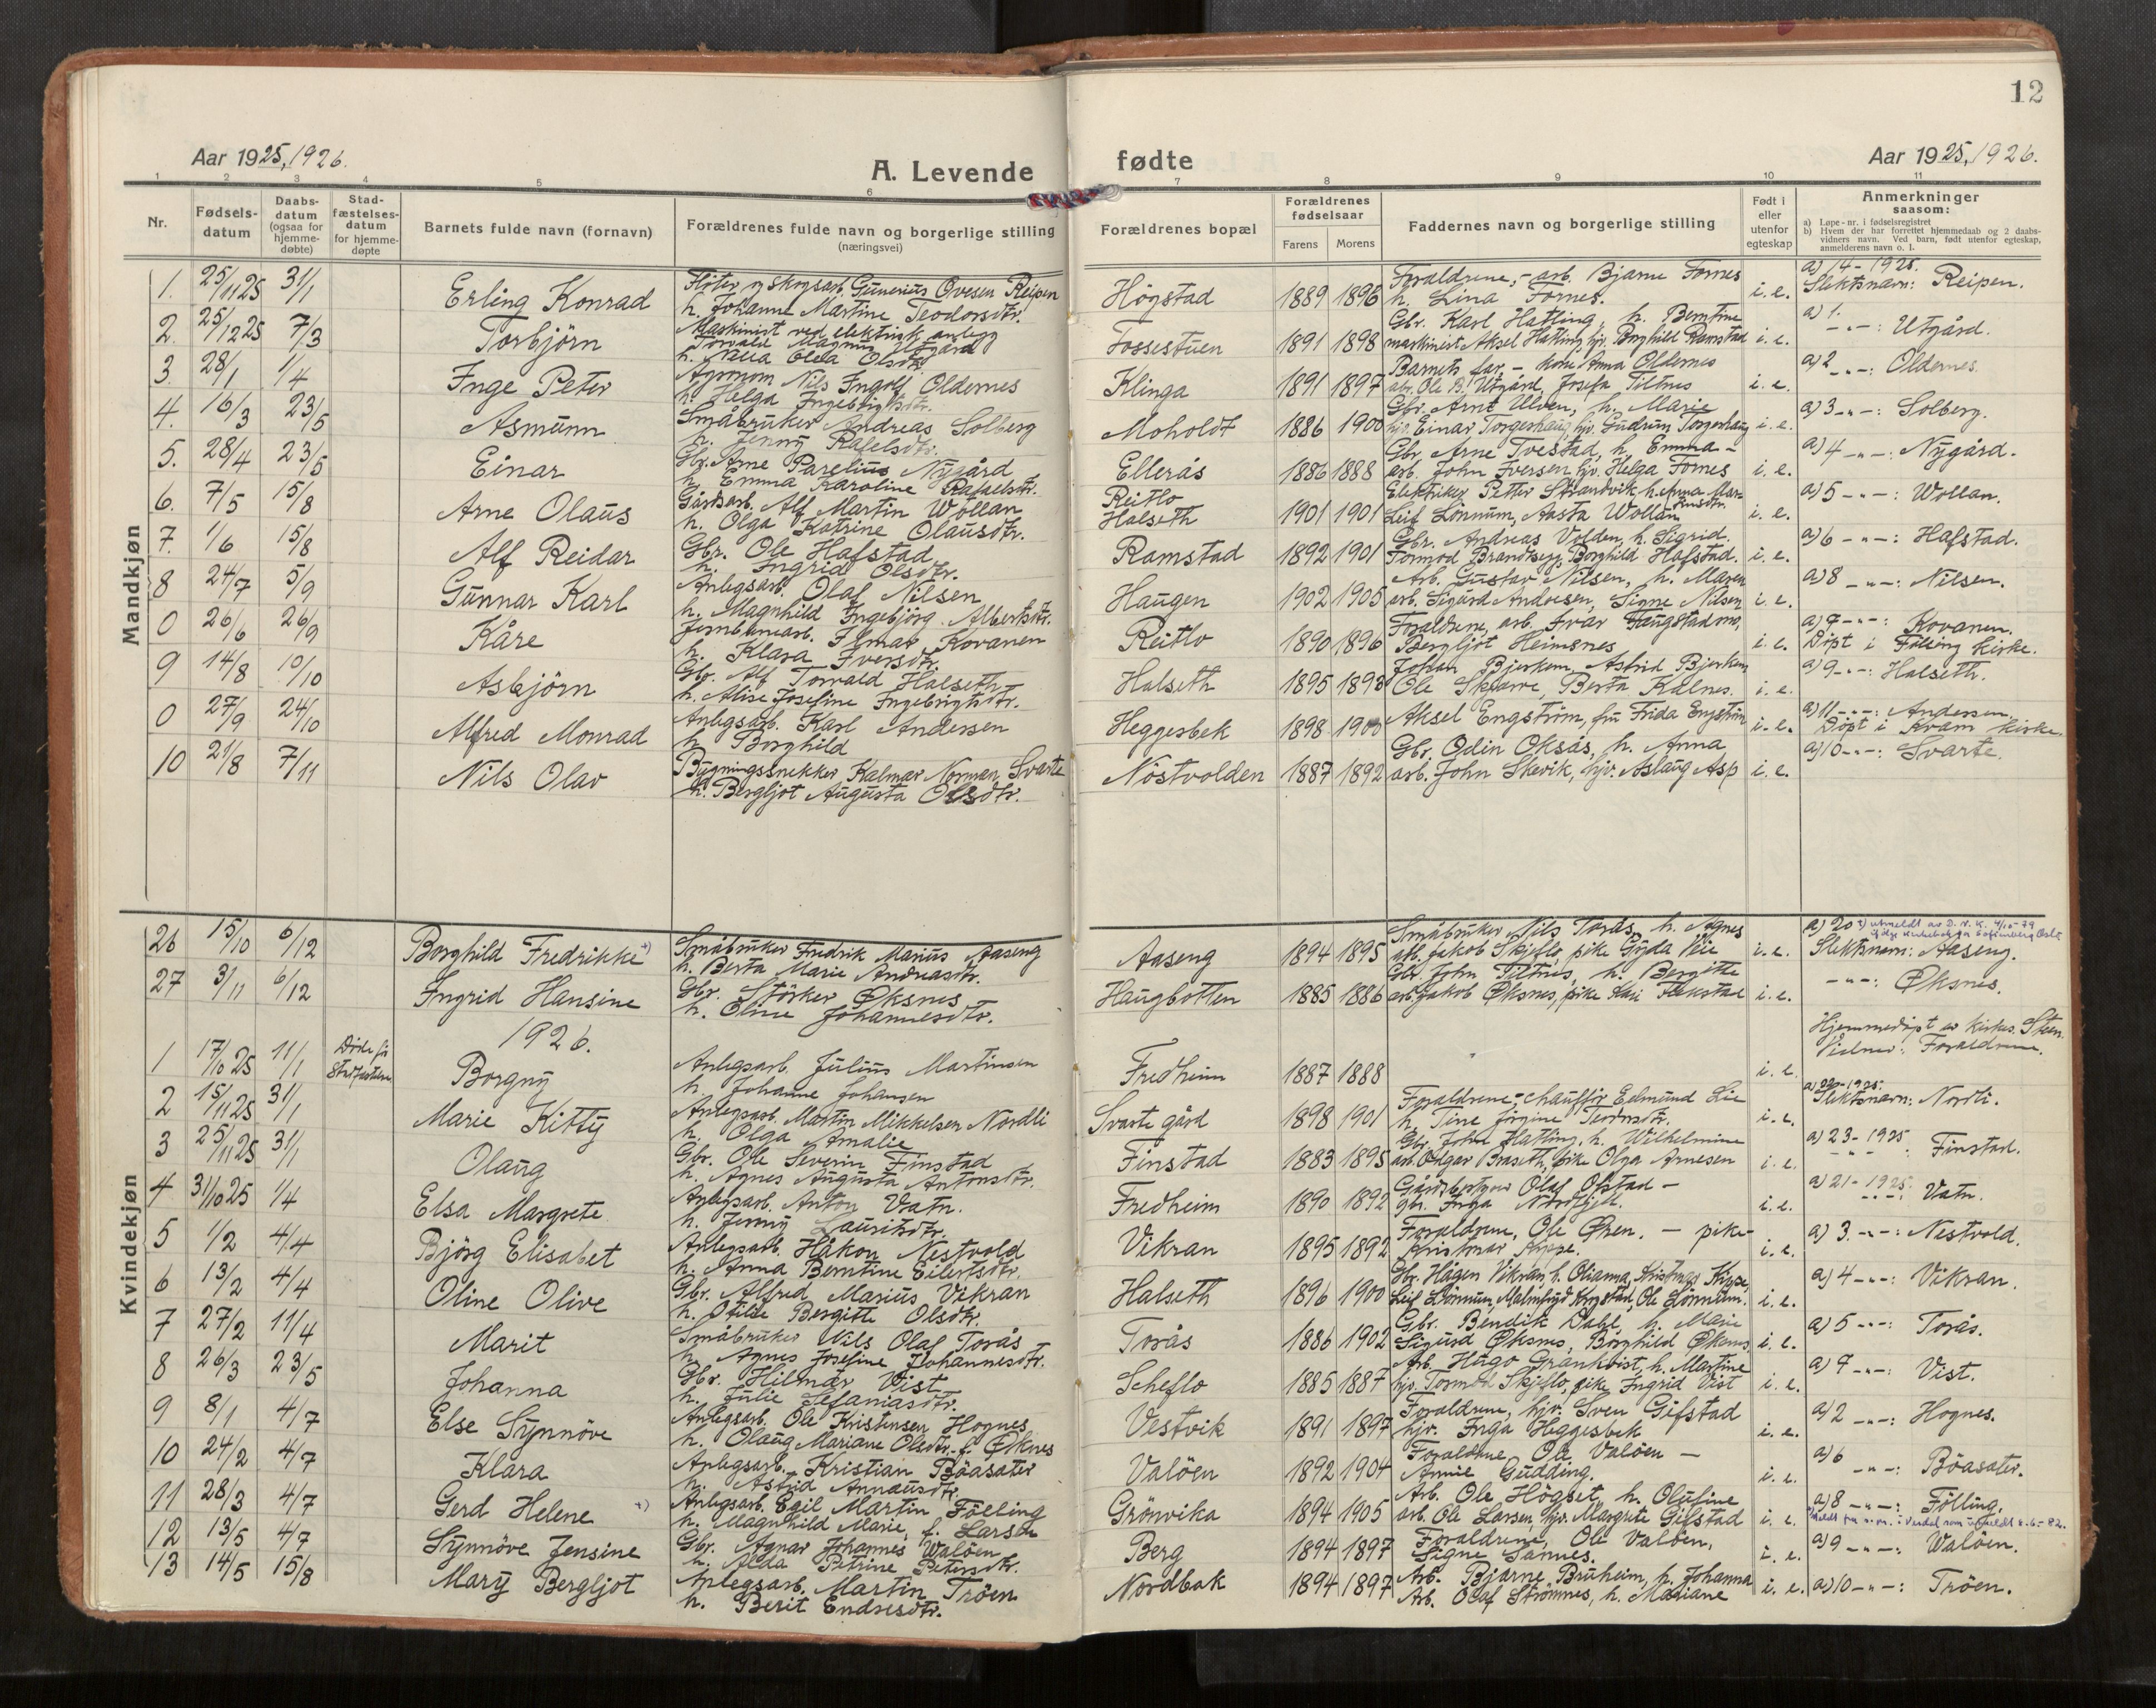 12
Aar 1925, 1926.
A. Levende
fødte
Aar 1925, 1926.
1 2 3 4 5 6 7 8 9 10 11
Nr.
Fødsels-
datum
Daabs-
datum
(ogsaa for
hjemme-
døbte)
Stad-
fæstelses-
datum
for hjemme-
døpte
Barnets fulde navn (fornavn)
Forældrenes fulde navn og borgerlige stilling
(næringsvei)
Forældrenes bopæl
Forældrenes
fødselsaar
Farens Morens
Faddernes navn og borgerlige stilling
Født i
eller
utenfor
egteskap
Anmerkninger
saasom:
a) Løpe-nr. i fødselsregistret
b) Hvem der har forrettet hjemmedaab og 2 daabs-
vidners navn. Ved barn, født utenfor egteskap,
anmelderens navn o. l.
Mandkjøn
1. 25/11 25 31/1 Erling Konrad Fløter og skogsarb. Gunerius Ovesen Reipen
h. Johanne Martine Teodorsdtr. Högstad 1889 1896 Forældrene, - arb. Bjarne Fornes
h. Lina Fornes. i. e. a) 14 - 1925.
Slektsnavn: Reipen.
2. 25/12 25 7/3 Torbjörn Maskinist ved elektrisk anlegg
Torvald Magnus Utgård
h. Olea Olsdtr. Fossestuen 1891 1898 Gbr. Karl Hatling, h. Berntine
maskinist Aksel Hatling, hjv. Borghild Ramstad i. e. a) 1.
-"-: Utgård.
3. 28/1 1/4 Inge Peter Agronom Nils Ingolf Oldernes
h. Helga Ingebrigtsdtr. Klinga 1891 1897 Barnets far, - kone Anna Oldernes
Ole B. Utgård, Josefa Tiltnes i. e. a) 2 -"-: Oldernes.
4. 16/3 23/5 Asmunn Småbruker Andreas Solberg
h. Jenny Rafelsdtr. Moholdt 1886 1900 Gbr. Arnt Ulven, h. Marie
Einar Torgershaug, hjv. Gudrun Torgershaug i. e. a) 3 -"-: Solberg.
5. 28/4 23/5 Einar Gbr. Arne Parelius Nygård
h. Emma Karoline Rafaelsdtr. Ellerås 1886 1888 Gbr. Arne Tvestad, h. Emma -
arb. John Iversen, hjv. Helga Fornes i. e. a) 4 -"-: Nygård.
6. 7/5 15/8 Arne Olaus Gårdsarb. Alf Martin Wollan
h. Olga Katrine Olausdtr. Reitlo
Halseth 1901 1901 Elektriker Petter Strandvik, h. Anna
Leif Lönnum, Aasta Wollan i. e. a) 5 -"-: Wollan.
7. 1/6 15/8 Alf Reidar Gbr. Ole Hafstad
h. Ingrid Olsdtr. Ramstad 1892 1901 Gbr. Andreas Volden, h. Sigrid.
Tormod Brandsegg, Borghild Hafstad. i. e. a) 6 -"-: Hafstad.
8 24/7 5/9 Gunnar Karl Anlegsarb. Olaf Nilsen
h. Magnhild Ingebjörg Albertsdtr. Haugen 1902 1905 Arb. Gustav Nilsen, h. Maren
arb. Sigurd Andresen, Signe Nilsen i. e. a) 8 -"-: Nilsen.
0 26/6 26/9 Kåre Jernbanearb. Ilmar Kovanen
h. Klara Iversdtr. Reitlo 1890 1896 Forældrene, arb. Ivar
Bergljot Heimsnes i. e. a) 7 -"-: Kovanen.
Döpt i Fölling kirke.
9 14/8 10/10 Asbjörn Gbr. Alf Torvald Halseth
h. Alise Josefine Ingebrigtsdtr. Halseth 1895 1898 Johan Bjerkem, Astrid Bjerkem
Ole Skjerve, Berta Kalnes. i. e. a) 9 -"-: Halseth.
0 27/9 24/10 Alfred Monrad Anlegsarb. Karl Andersen
h. Borghild Heggesbek 1898 1900 Aksel Engström, fru Frida Engström i. e. a) 11 -"-: Andersen.
Döpt i Kvam kirke.
10 21/8 7/11 Nils Olav Bygningssnekker Kalmar Norman Svarte
h. Bergljot Augusta Olsdtr. Nöstvolden 1887 1892 Gbr. Odin Oksås, h. Anna
arb. John Skevik, hjv. Aslaug Asp i. e. a) 10 -"-: Svarte.
Kvindekjøn
26 15/10 6/12 Borghild Fredrikke +) Småbruker Fredrik Marius Aaseng
h. Berta Marie Andreasdtr. Aaseng 1894 1895 Småbruker Nils Torås, h. Agnes
arb. Jakob Skjeflo, pike Gyda Veie i. e. a) 20 +) utmeldt av D. N. K. 4/10-79
Slektsnavn: Aaseng.
27 3/11 6/12 Ingrid Hansine Gbr. Störker Øksnes
h. Oline Johannesdtr. Haugbotten 1885 1886 Gbr. John Tiltnes, h. Bergitte
arb. Jakob Øksnes, pike Kari i. e. -"-: Øksnes.
1926.
1 17/10 25 11/1 Döde för
Stadfestelsen Borgny Anlegsarb. Julius Martinsen
h. Johanne Johansen Fredheim 1887 1888 i. e. Hjemmedöpt av kirkes. Steen.
Vidner: Forældrene.
2 15/11 25 31/1 Marie Kitty Anlegsarb. Martin Mikkelsen Nordli
h. Olga Amalie Svarte gård 1898 1901 Forældrene, - chaufför Edmund Lie
h. Tine Jörgine i. e. a) 22 - 1925.
Slektsnavn: Nordli.
3 25/11 25 31/1 Olaug Gbr. Ole Severin Finstad
h. Agnes Augusta Antonsdtr. Finstad 1883 1895 Gbr. John Hatling, h. Wilhelmine
arb. Odgar Braseth, pike Olga Arnesen i. e. a) 23 - 1925
-"- Finstad.
4 31/10 25 1/4 Elsa Margrete Anlegsarb. Anton Vatn.
h. Jenny Lauritsdtr. Fredheim 1890 1892 Gårdsbestyrer Olaf Ofstad -
Inga Nordfjell. i. e. a) 21 - 1925.
-"-: Vatn.
5 1/2 4/4 Björg Elisabet Anlegsarb. Håkon Nestvold
h. Anna Berntine Eilertsdtr. Vikran 1895 1892 Forældrene, Ole Øhen. - pike
i. e. a) 3. -"-: Nestvold.
6 13/2 4/4 Oline Olive Gbr. Alfred Marius Vikran
h. Otilde Bergitte Olsdtr. Halseth 1896 1900 Gbr. Hågen Vikran, h. Olianna,
Leif Lönnum, Malmfrid Krogstad, Ole Lönnum. i. e. a) 4 -"-: Vikran.
7 27/2 11/4 Marit Småbruker Nils Olaf Torås
h. Agnes Josefine Johannesdtr. Torås 1886 1902 Gbr. Bendik Dahl, h. Marie
Sigurd Øksnes, Borghild Øksnes i. e. a) 5 -"-: Torås.
8 26/3 23/5 Johanna Gbr. Hilmar Vist
h. Julie Sefaniasdtr. Scheflo 1885 1887 Arb. Hugo Grankvist, h. Martine
Tormod Skjeflo, pike Ingrid Vist i. e. a) 7 -"-: Vist.
9 8/1 4/7 Else Synnöve Anlegsarb. Ole Kristensen Hognes
h. Olaug Mariane Olsdtr. f. Øksnes Vestvik 1891 1897 Forældrene, hjv. Sven Gifstad
hjv. Inga Heggesbek i. e. a) 2 -"-: Hognes.
10 24/2 4/7 Klara Anlegsarb. Kristian Böasæter
h. Astrid Annausdtr. Valöen 1892 1904 Forældrene, Ole Valöen -
Annie Gudding. i. e. a) 6
-"-: Böasæter.
11 28/3 4/7 Gerd Helene +) Anlegsarb. Egil Martin Fölling
h. Magnhild Marie, f. Larsen Grönvika 1894 1905 Arb. Ole Högset, h. Olufine
arb. Ole Larsen, hjv. Margrete Gifstad i. e. a) 8 -"-: Fölling.
12 13/5 4/7 Synnöve Jensine Gbr. Agnar Johannes Walöen
h. Alda Petrine Petersdtr. Berg 1894 1897 Forældrene, Ole Valöen,
Signe Sannes. i. e. a) 9 -"-: Walöen.
13 14/5 15/8 Mary Bergljot Anlegsarb. Martin Tröen
h. Berit Endresdtr. Nordbak 1894 1897 Arb. Bjarne Bruheim, h. Johanna
Arb. Olaf Strömnes, h. Mariane i. e. a) 10 -"-: Tröen.